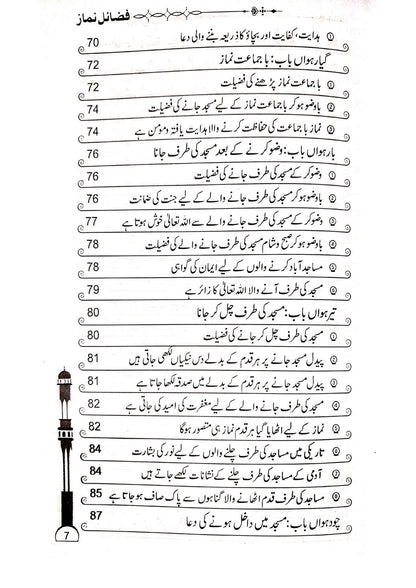 فضائل نماز
① ہدایت، کفایت اور بچاؤ کا ذریعہ بننے والی دعا 70
گیارہواں باب: باجماعت نماز 72
① باجماعت نماز پڑھنے کی فضیلت 72
② باوضو ہو کر باجماعت نماز کے لیے مسجد جانے کی فضیلت 74
③ نماز باجماعت کی حفاظت کرنے والا ہدایت یافتہ و مومن ہے 74
بارہواں باب: وضو کرنے کے بعد مسجد کی طرف جانا 76
① وضو کر کے مسجد کی طرف جانے کی فضیلت 76
② باوضو ہو کر مسجد کی طرف جانے والے کے لیے جنت کی ضمانت 76
③ وضو کر کے مسجد کی طرف جانے والے سے اللہ تعالیٰ خوش ہوتا ہے 77
④ باوضو ہو کر صبح و شام مسجد کی طرف جانے والے کی فضیلت 78
⑤ مساجد آباد کرنے والوں کے لیے ایمان کی گواہی 78
⑥ مسجد کی طرف آنے والا اللہ تعالیٰ کا زائر ہے 79
تیرہواں باب: مسجد کی طرف چل کر جانا 80
① مسجد کی طرف چل کر جانے کی فضیلت 80
② پیدل مسجد جانے پر ہر قدم کے بدلے دس نیکیاں لکھی جاتی ہیں 81
③ پیدل مسجد جانے پر ہر قدم کے بدلے میں صدقہ لکھا جاتا ہے 81
④ مسجد کی طرف جانے والے کے لیے مغفرت کی امید کی جاتی ہے 82
⑤ نماز کے لیے اٹھایا گیا ہر قدم نماز ہی متصور ہوگا 82
⑥ تاریکی میں مساجد کی طرف چلنے والوں کے لیے نور کی بشارت 84
⑦ آدمی کے مساجد کی طرف چلنے کے نشانات لکھے جاتے ہیں 84
⑧ مساجد کی طرف قدم اٹھانے والا گناہوں سے پاک صاف ہو جاتا ہے 85
چودہواں باب: مسجد میں داخل ہونے کی دعا 87
7